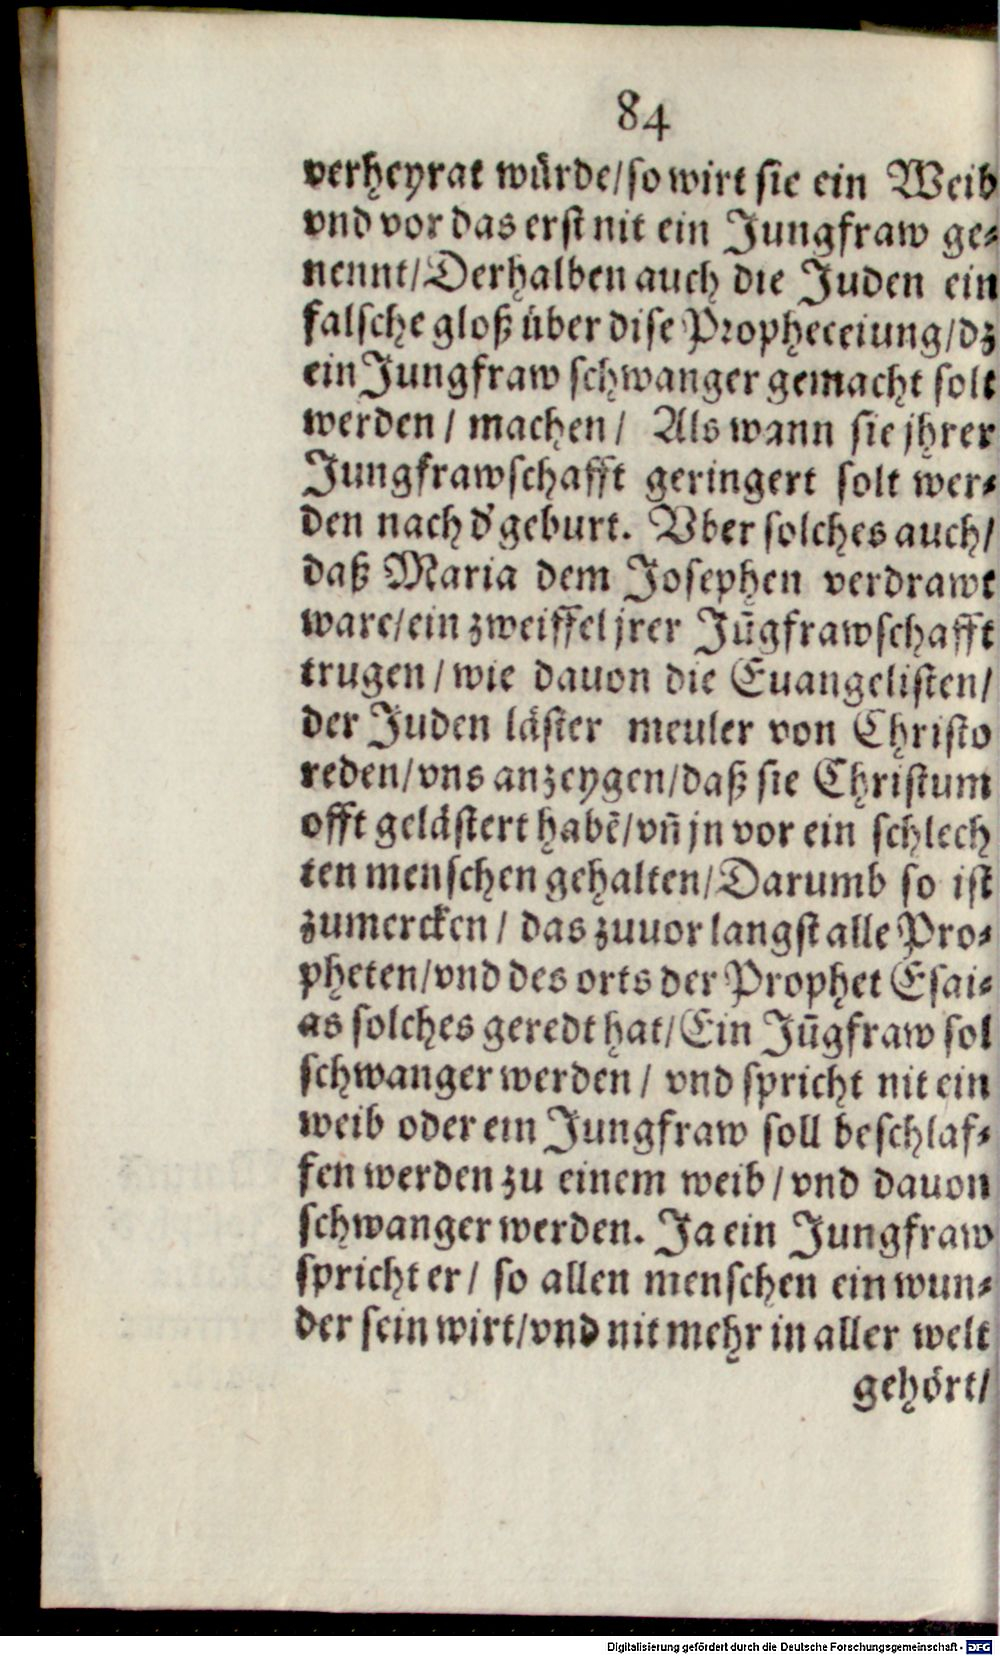 84
verheyrat würde/so wirt sie ein Weib
vnd vor das erst nit ein Jungfraw ge-
nennt/Derhalben auch die Juden ein
falsche gloß über dise Propheceiung/dz
ein Jungfraw schwanger gemacht solt
werden/ machen/ Als wann sie jhrer
Jungfrawschafft geringert solt wer-
den nach d' geburt. Vber solches auch/
daß Maria dem Josephen verdrawt
ware/ein zweiffel jrer Jũgfrawschafft
trugen/ wie dauon die Euangelisten/
der Juden läster meuler von Christo
reden/vns anzeygen/daß sie Christum
offt gelästert habẽ/vñ jn vor ein schlech
ten menschen gehalten/Darumb so ist
zumercken/ das zuuor langst alle Pro-
pheten/vnd des orts der Prophet Esai-
as solches geredt hat/Ein Jũgfraw sol
schwanger werden/ vnd spricht nit ein
weib oder ein Jungfraw soll beschlaf-
fen werden zu einem weib/ vnd dauon
schwanger werden. Ja ein Jungfraw
spricht er/ so allen menschen ein wun-
der sein wirt/vnd nit mehr in aller welt
gehört/
Digitalisierung gefördert durch die Deutsche Forschungsgemeinschaft - DFG